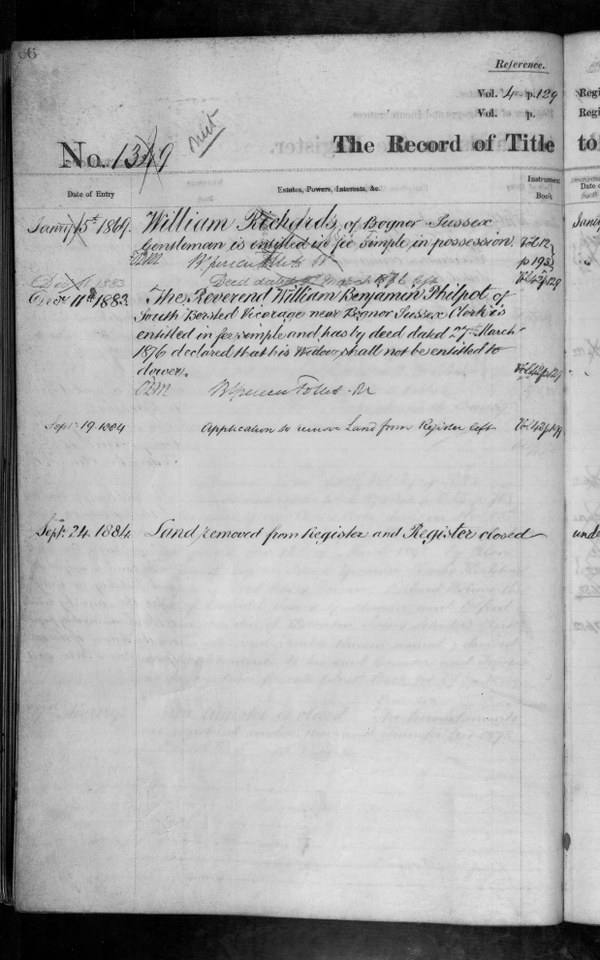 66
Reference.
Vol. 4 p. 129
Vol. p.
No. 1349
The Record of Title
Date of Entry
Estates, Powers, Interests, &c.
Instrument
Book
Jany 15th 1869.
William Richards, of Bognor Sussex
Gentleman is entitled in fee simple in possession.
Vol. 12
p 193
Decr 1883
Deed dated March 1876 left
Vol 42 p 129
Decr 11th 1883.
The Reverend William Benjamin Philpot of
South Bersted Vicarage near Bognor Sussex Clerk is
entitled in fee simple and has by deed dated 27 March
1876 declared that his Widow shall not be entitled to
dower.
Vol 42 p 129
Sept. 19. 1884
Application to remove Land from Register left
Sept. 24. 1884.
Land removed from Register and Register closed
Regi
Regi
to
Date of
Jany
unde